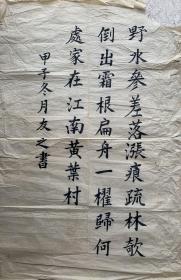 野水參差落漲痕疏林欹
倒出霜根扁舟一櫂歸何
處家在江南黃葉村
甲子冬月友之書